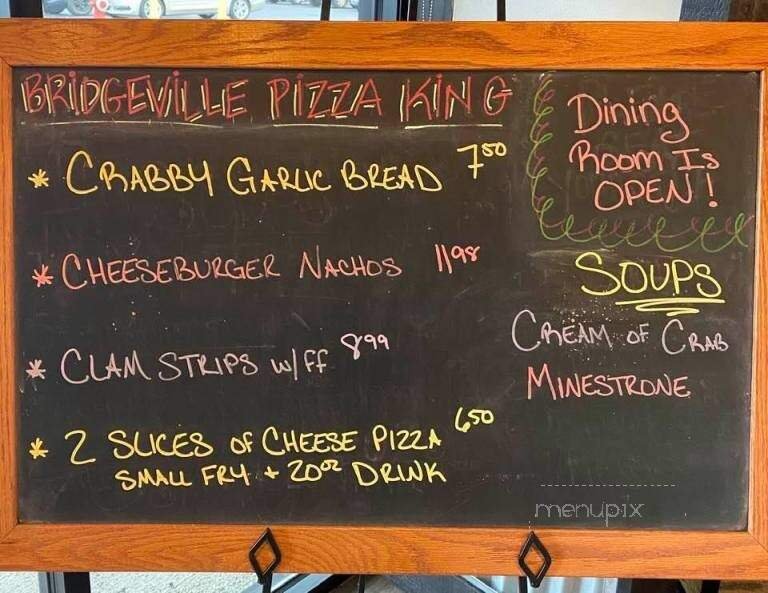 BRIDGEVILLE PIZZA KING
* CRABBY GARLIC BREAD 7.50
* CHEESEBURGER NACHOS 11.98
* CLAM STRIPS w/FF 8.99
* 2 SLICES OF CHEESE PIZZA 6.50
SMALL FRY + 20oz DRINK
Dining
Room Is
OPEN!
SOUPS
CREAM OF CRAB
MINESTRONE
menupix